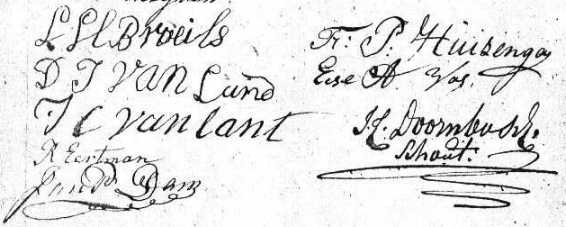 L H Broeils
D J van Lund
J C vanlant
R Eertman
Jan P. Dam
Fr: P. Huizenga
Eise A. Vos.
H. Doornbosch.
Schout.